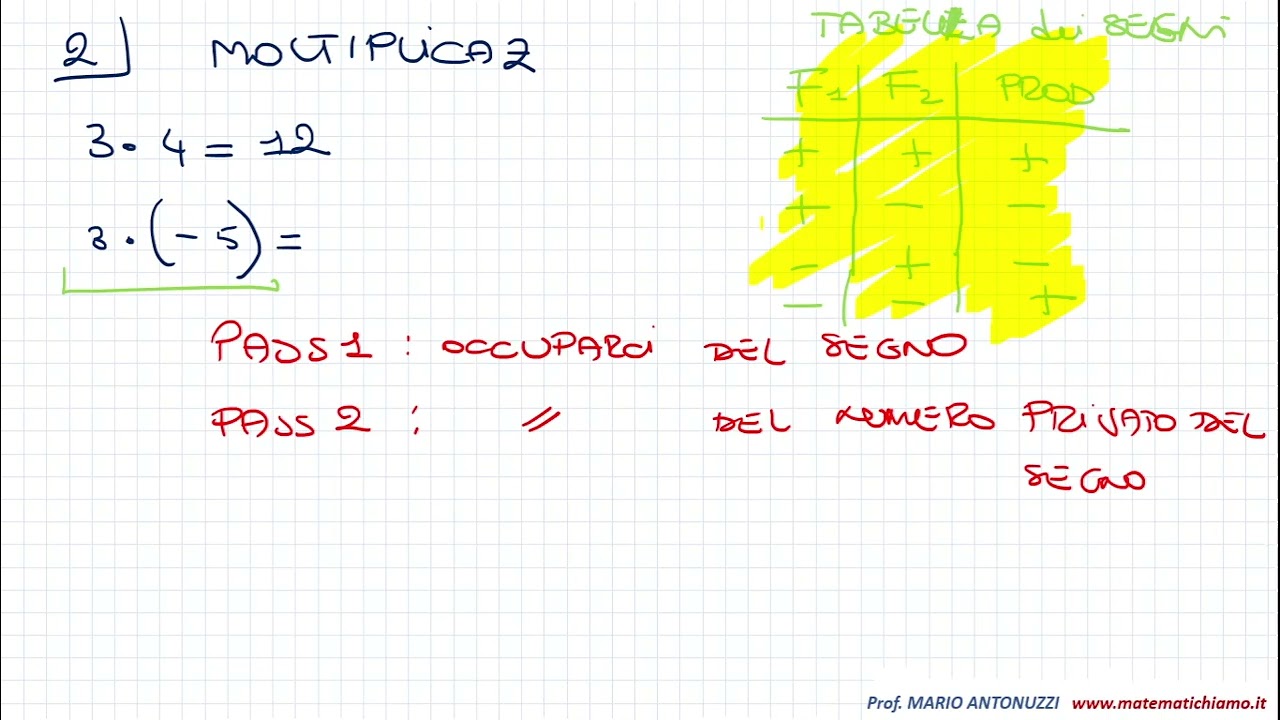 2] MOLTIPLICAZ
3 · 4 = 12
3 · (-5) =
TABELLA dei SEGNI
F1 F2 PROD
+ + +
+ - -
- + -
- - +
PASS 1 : OCCUPARCI DEL SEGNO
PASS 2 : // DEL NUMERO PRIVATO DEL
SEGNO
Prof. MARIO ANTONUZZI www.matematichiamo.it